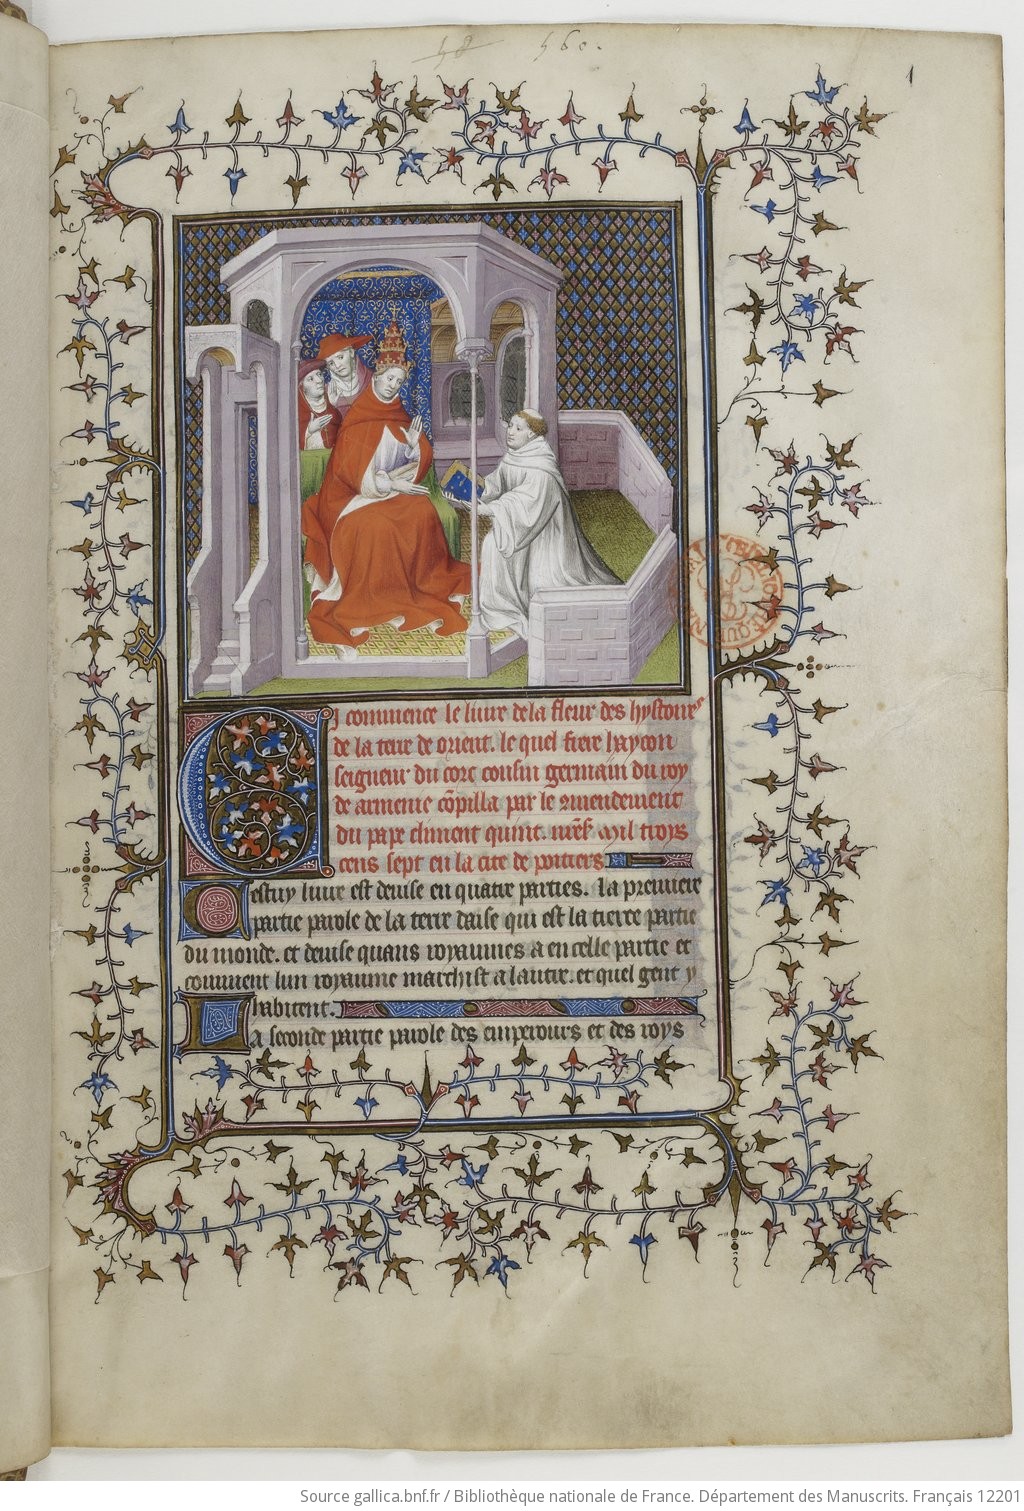 58 560.
1
Cy commence le livre de la fleur des hystoires
de la terre de orient. le quel frere hayton
seigneur du corc cousin germain du roy
de armenie cõpilla par le 9mendement
du pape climent quint. mil troys
cens sept en la cite de poitiers
Cestuy livre est devise en quatre parties. La premiere
partie parole de la terre daise qui est la tierce partie
du monde. et devise quans royaumes a en celle partie et
comment lun royaume marchist a lautre. et quel gent y
habitent.
La seconde partie parole des emperours et des roys
Source gallica.bnf.fr / Bibliothèque nationale de France. Département des Manuscrits. Français 12201